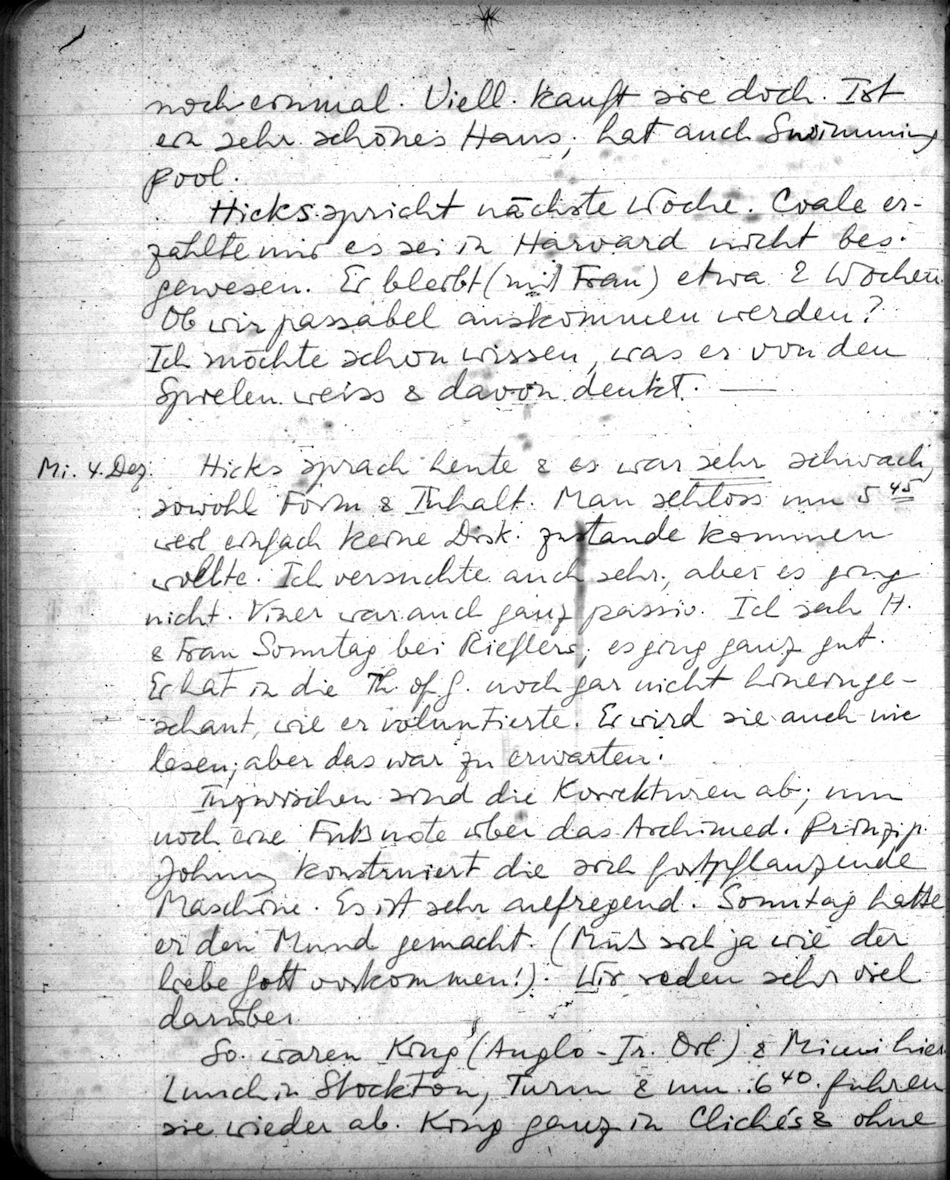 noch einmal. Viell. kauft sie doch. Ist
ein sehr schönes Haus, hat auch Swimming
pool.
Hicks spricht nächste Woche. Coale er-
zählte mir es sei in Harvard nicht bes.
gewesen. Er bleibt (mit Frau) etwa 2 Wochen.
Ob wir passabel auskommen werden?
Ich möchte schon wissen, was er von den
Spielen weiss & davon denkt. —
Mi. 4. Dez. Hicks sprach heute & es war sehr schwach,
sowohl Form & Inhalt. Man schloss um 5 45
weil einfach keine Disk. zustande kommen
wollte. Ich versuchte auch sehr, aber es ging
nicht. Viner war auch ganz passiv. Ich sah H.
& Frau Sonntag bei Rieflers, es ging ganz gut.
Er hat in die Th. of G. noch gar nicht hineinge-
schaut, wie er voluntierte. Er wird sie auch nie
lesen, aber das war zu erwarten.
Inzwischen sind die Korrekturen ab; nun
noch eine Fußnote über das Archimed. Prinzip.
Johnny konstruiert die sich fortpflanzende
Maschine. Es ist sehr aufregend. Sonntag hatte
er den Mund gemacht. (Muß sich ja wie der
liebe Gott vorkommen!). Wir reden sehr viel
darüber.
So. waren King (Anglo-Ir. Oil) & Mimi hier
Lunch in Stockton, Turm & um 6 40 fuhren
sie wieder ab. King ganz in Clichés & ohne